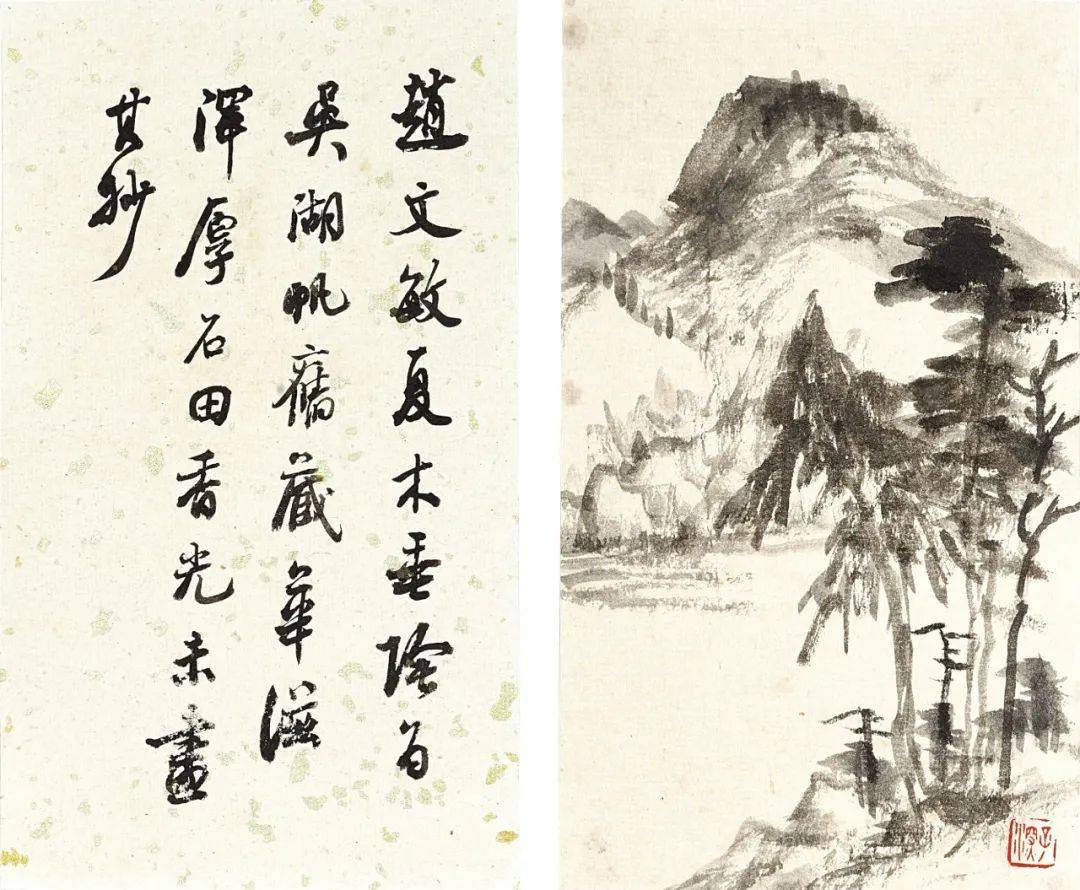 趙文敏夏木垂陰為
吳湖帆舊藏華滋
渾厚石田香光未盡
其玅